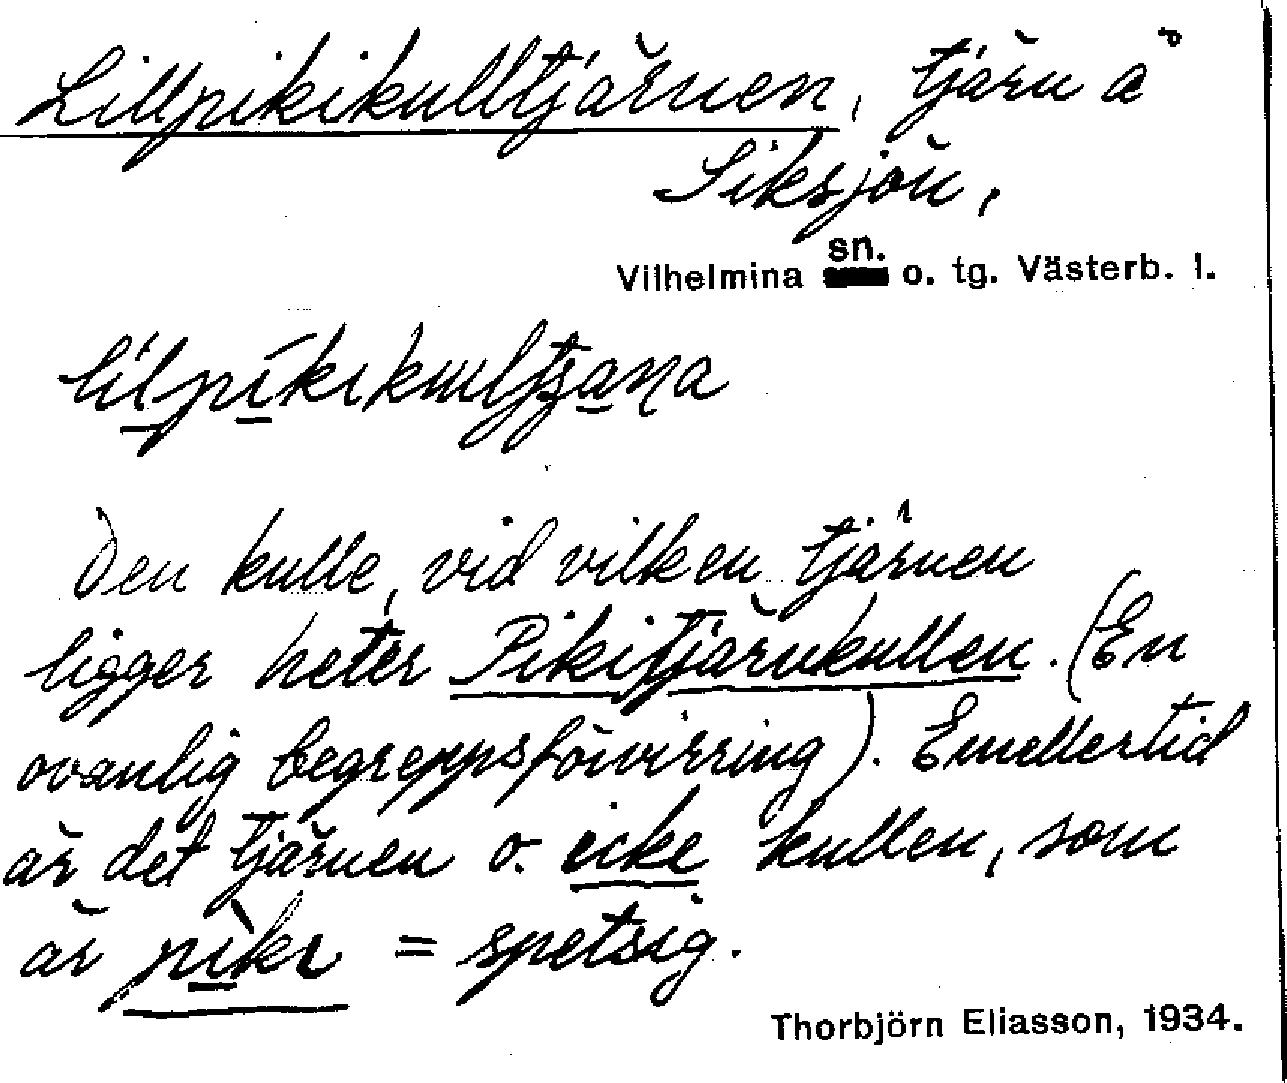 Lillpikikulltjärnen, tjärn å
Siksjön,
Vilhelmina sn. o. tg. Västerb. l.
Den kulle, vid vilken tjärnen
ligger heter Pikitjärnkullen. (En
ovanlig begreppsförvirring). Emellertid
är det tjärnen o. icke kullen, som
är pìkı = spetsig.
Thorbjörn Eliasson, 1934.